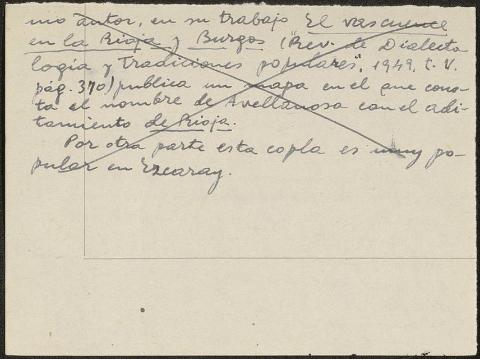 mo autor, en su trabajo El vascuence
en la Rioja y Burgos ("Rev. de Dialecto-
logía y Tradiciones populares", 1949, t. V.
pág. 370) publica un mapa en el que cons-
ta el nombre de Avellanosa con el adi-
tamiento de Rioja.
Por otra parte esta copla es muy po-
pular en Ezcaray.